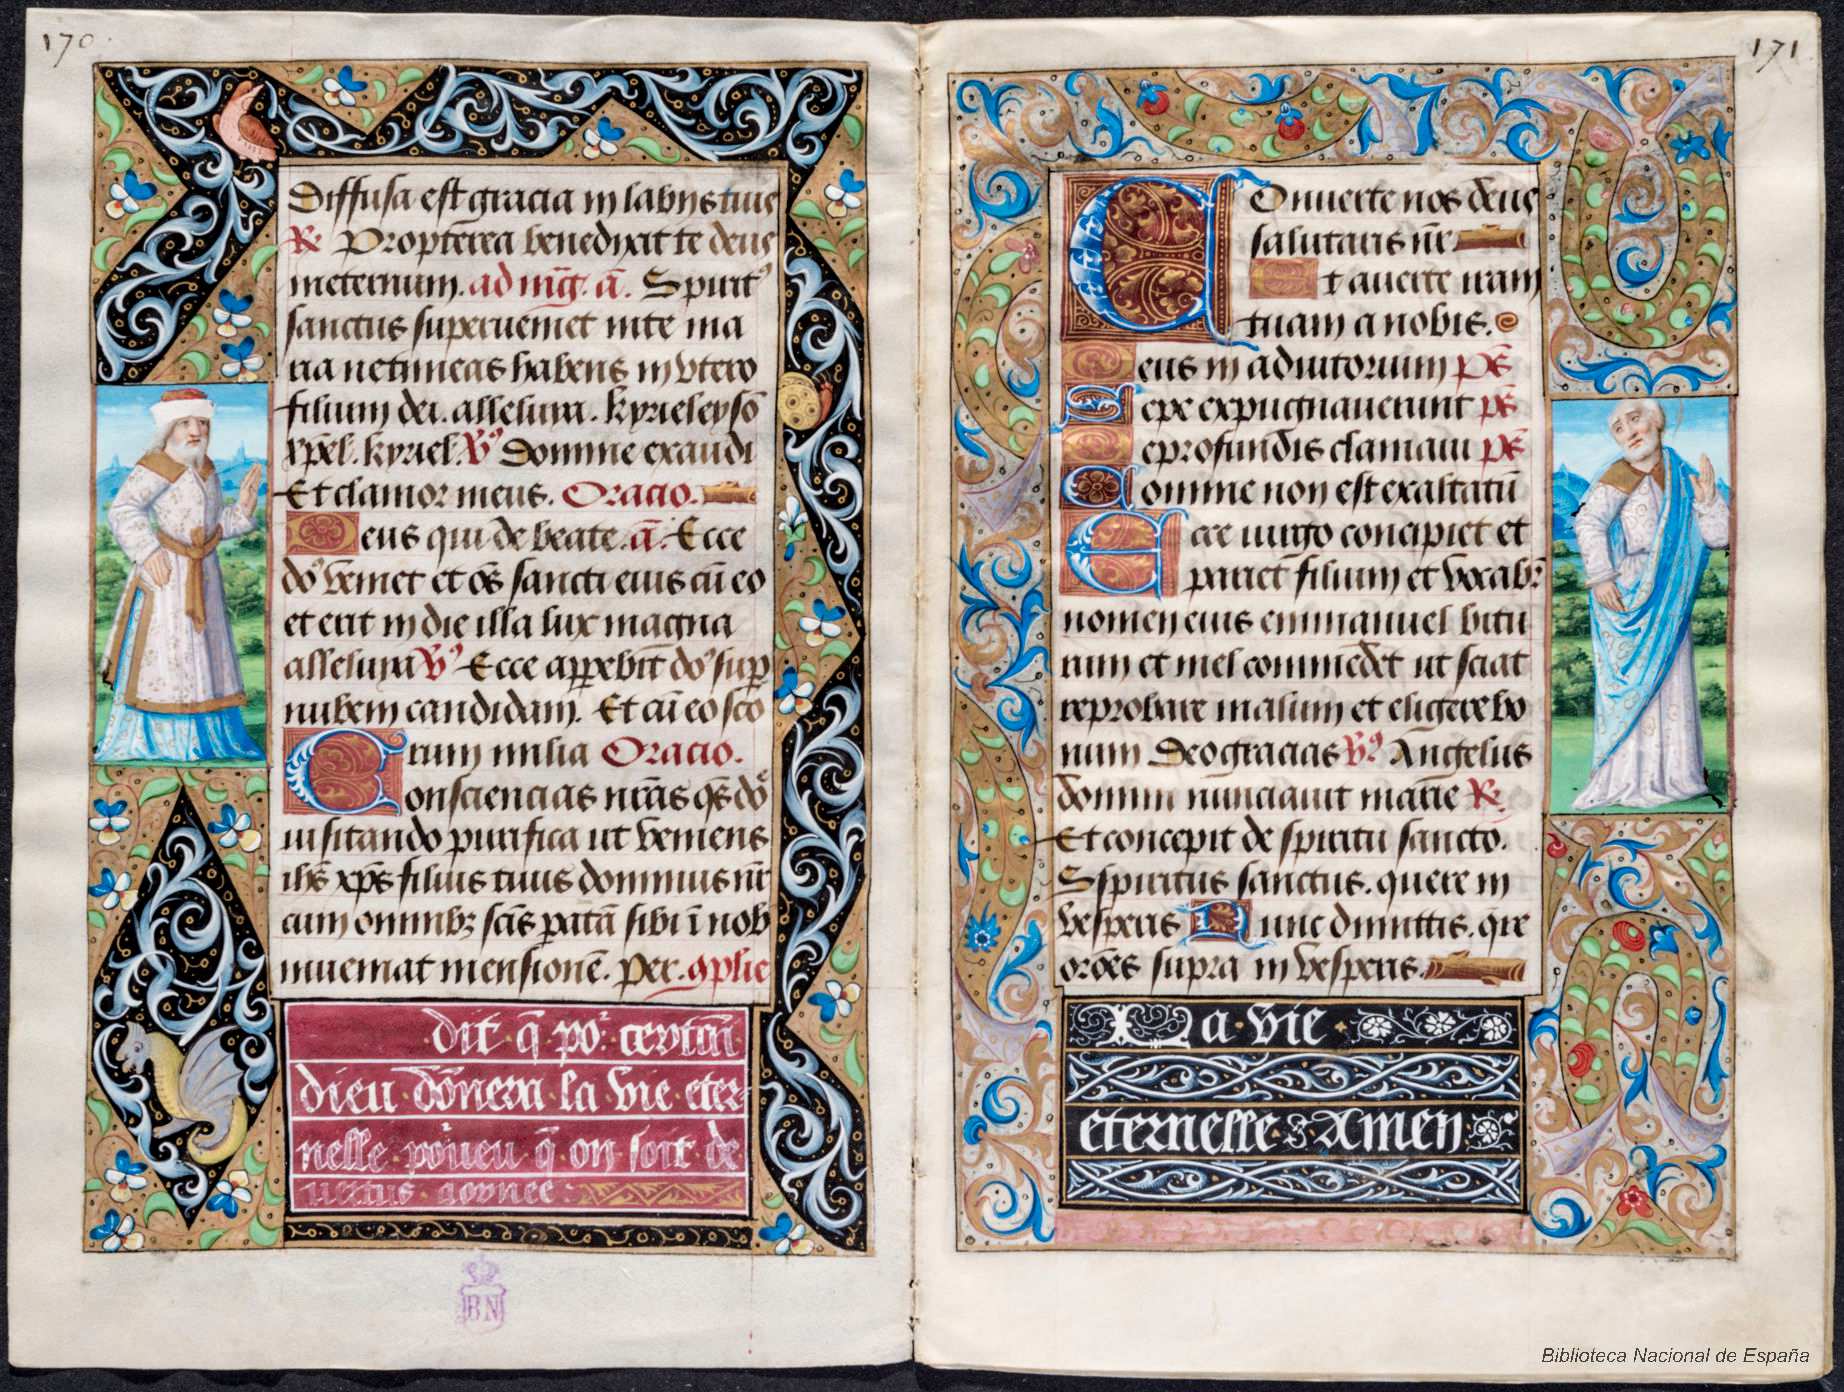 170
Diffusa est gracia in labijs tuis
R Propterea benedixit te deus
ineternum. ad mg. a. Spirit9
sanctus superueniet inte ma
ria netimeas habens in vtero
filium dei. alleluya. kyrieleysō
xp̄el. kyriel. V9 Domine exaudi
Et clamor meus. Oracio.
Deus qui de beate. a. Ecce
do9 veniet et oēs sancti eius cū eo
et erit in die illa lux magna
alleluya V9 Ecce apparebit do9 sup
nubem candidam. Et cū eo scō
rum milia Oracio.
Consciencias nr̄as qs do
uisitando purifica ut veniens
ihs xp̄s filius tuus dominus nr̄
cum omnibz scīs paratā sibi ī nob
inueniat mensionē. Per. 9plie
dit q̄ po2 certain
dieu dōnera la vie eter
nelle pourueu q̄ on soit de
vertus aournee
171
Conuerte nos deus
salutaris nr̄
Et auerte iram
tuam a nobis.
Deus in adiutorium ps
Sepe expugnauerunt ps
Deprofundis clamaui ps
Domine non est exaltatū
Ecce uirgo concipiet et
pariet filium et vocabr
nomen eius emmanuel butiri
rum et mel commedet ut sciat
reprobare malum et eligere bo
num Deogracias V9 Angelus
domini nunciauit marie R
Et concepit de spiritu sancto.
Sspiritus sanctus. quere in
vesperis Nunc dimittis. qre
orōes supra in vesperis.
La vie
eternelle Amen
BN
Biblioteca Nacional de España